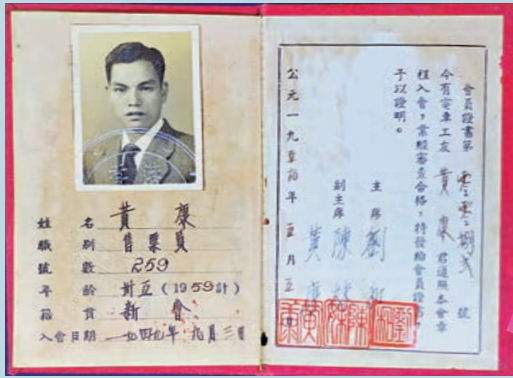 姓名 黃康
職別 售票員
號數 259
年齡 卅五 (1959計)
籍貫 新會
入會日期 一九四九年 九月三日
會員證書第 零零捌弍 號
今有電車工友 黃康 君遵照本會章
程入會，業經審查合格，特發給會員證書
予以證明。
主席 劉
副主席 陳
黃
公元一九 年 五月五